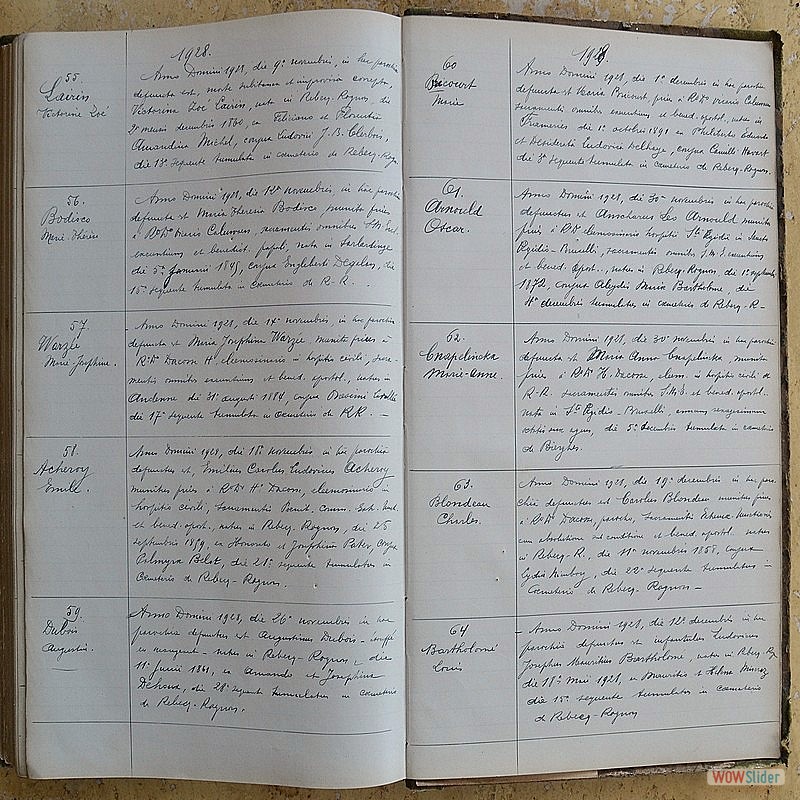 1928.
55.
Lairin
Victorine Zoé
Anno Domini 1928, die 9ª novembris, in hac parochia
defuncta est, morte subitanea et improvisa correpta,
Victorina Zoe Lairin, nata in Rebecq-Rognon, die
3ª mensis decembris 1860, ex Feliciano et Florentia
Amandina Michel, conjux Ludovici J.B. Clerbois,
die 13ª sequente tumulata in cœmeterio de Rebecq-Rogn.
56.
Bodisco
Marie-Thérèse
Anno Domini 1928, die novembris, in hac parochia
defuncta est Maria Theresia Bodisco, munita prius
à Rdo Dno sacramentis omnibus S.M. Eccl.
exeuntium et benedict. papali, nata in
die 5ª Januarii 1845, conjux Engleberti Degelas, die
15ª sequente tumulata in cœmeterio de R-R.
57.
Warzée
Marie Josephine.
Anno Domini 1928, die 14ª novembris, in hac parochia
defuncta est Maria Josephina Warzée, munita prius à
R.Do Dacosse H. eleemosinario in hospitio civili, sacra-
mentis omnibus exeuntium et bened. apostol., nata in
Andenne die 31ª augusti 1884, conjux
die 17ª sequente tumulata in cœmeterio de R.R. —
58.
Acheroy
Emile.
Anno Domini 1928, die 18ª novembris in hac parochia
defunctus est, Emilius Carolus Ludovicus Acheroy
munitus prius à R.Do H. Dacosse, eleemosinario in
hospitio civili, sacramentis
et bened. apost., natus in Rebecq-Rognon, die 25
septembris 1859, ex Honorato et Josephina Pater, conjux
Palmyra Belot, die 21ª sequente tumulatus in
cœmeterio de Rebecq-Rognon.
59.
Dubois
Augustin.
Anno Domini 1928, die 26ª novembris in hac
parochia defunctus est Augustinus Dubois
natus in Rebecq-Rognon, die
11ª junii 1861, ex Amando et Josephina
die 28ª sequente tumulatus in cœmeterio
de Rebecq-Rognon.
1928.
60
Bricourt
Marie
Anno Domini 1928, die 1ª decembris, in hac parochia
defuncta est Maria Bricourt, prius à R.Do
sacramentis omnibus exeuntium et bened. apostol., nata in
Frameries die 1ª octobris 1891, ex Philiberto Eduardo
et Desiderata Ludovica Delhaye, conjux Camilli Havart
die 3ª sequente tumulata in cœmeterio de Rebecq-Rognon.
61.
Arnould
Oscar.
Anno Domini 1928, die 30ª novembris, in hac parochia
defunctus est Anscharius Leo Arnould munitus
prius à R.Do eleemosinario hospitii Sti Egidii in Sancto
Egidio-Bruxelli, sacramentis omnibus S.M.E. exeuntium
et bened. apost., natus in Rebecq-Rognon, die 1ª septembris
1872, conjux Aleydis Maria Bartholomé, die
4ª decembris tumulatus in cœmeterio de Rebecq-R—
62.
Cnapelinckx
Marie-Anne.
Anno Domini 1928, die 30ª novembris, in hac parochia
defuncta est Maria Anna Cnapelinckx, munita
prius à R.Do H. Dacosse, eleem. in hospitio civili de
R-R. sacramentis omnibus S.M.E. et bened. apostol.
nata in Sto Egidio-Bruxelli, annum
ætatis suæ agens, die 5ª decembris tumulata in cœmeterio
de Bierghes.
63.
Blondeau
Charles.
Anno Domini 1928, die 19ª decembris in hac paro-
chia defunctus est Carolus Blondeau munitus prius
à R.Do Dacosse, parocho, sacramento Extremæ Unctionis
cum absolutione sub conditione et bened. apostol. natus
in Rebecq-R. die 11ª novembris 1858, conjux
Lydia die 22ª sequente tumulatus in
cœmeterio de Rebecq-Rognon—
64
Bartholomé
Louis
Anno Domini 1928, die 12ª decembris in hac
parochia defunctus est infantulus Ludovicus
Josephus Mauritius Bartholomé, natus in Rebecq-Rg
die 18ª Maii 1928, ex Mauritio et Helena
die 15ª sequente tumulatus in cœmeterio
de Rebecq-Rognon
WOWSlider